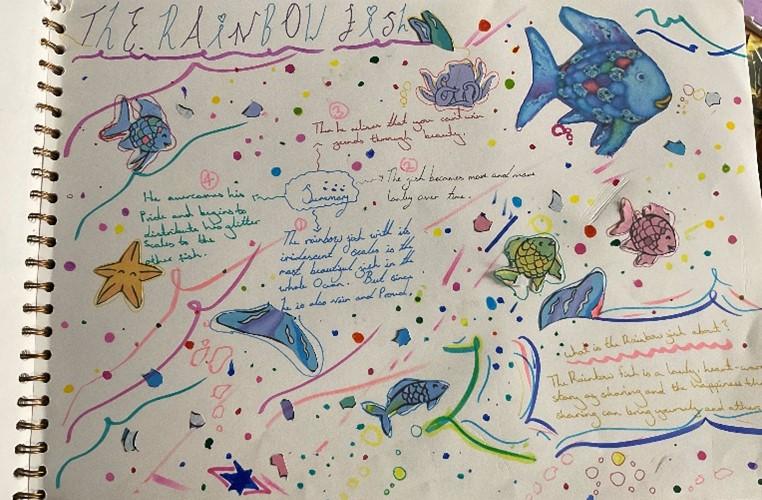 THE RAINBOW FISH
③
Then he realises that you can't win
friends through beauty.
②
The fish becomes more and more
lonely over time.
④
He overcomes his
Pride and begins to
distribute his glitter
Scales to the
other fish.
Summary
①
The rainbow fish with its
iridescent scales is the
most beautiful fish in the
whole Ocean. But since
he is also vain and Proud.
What is the Rainbow fish about?
The Rainbow fish is a lovely heart-war
story of sharing and the happiness th
sharing can bring yourself and other